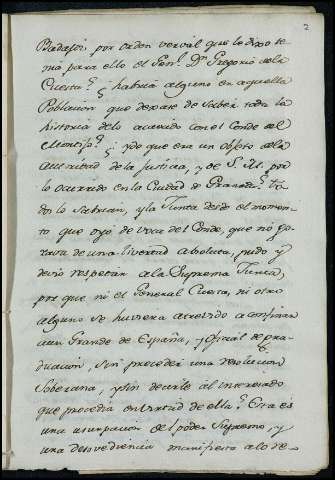 2
Badajoz por orden verval que le dixo te
nia para ello el Gen.l D.n Gregorio de la
Cuesta? ¿habria alguno en aquella
Poblacion que dexase de saber toda la
historia de lo acaecido con el Conde del
Montijo? ¿y de que era un objeto de la
autoridad de la Justicia, y de S. M. por
lo ocurrido en la Ciudad de Granada? To
dos lo sabrian, y la Junta desde el momen
to que oyó de voca del Conde, que no go
zava de una livertad absoluta, pudo y
devio respetar a la Suprema Junta,
por que ni el General Cuesta, ni otro
alguno se huviera atrevido a confinar
a un Grande de España, y oficial de gra
duación, sin preceder una resolucion
Soberana, y sin decirle al interesado
que procedia en virtud de ella? Esta és
una usurpacion de el poder Supremo, y
una desovediencia manifiesta a lo re-